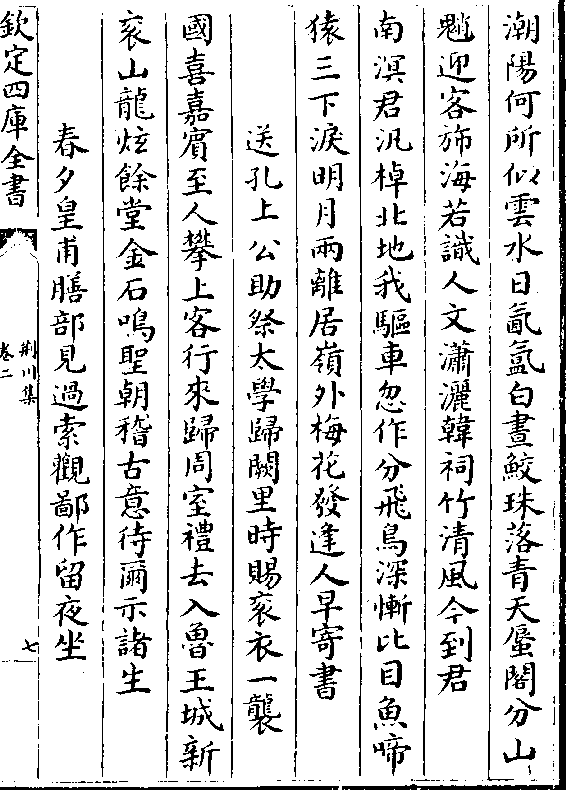 潮陽何所似雲水日氤氲白晝鮫珠落青天蜃閣分山
魈迎客斾海若識人文瀟灑韓祠竹清風今到君
南溟君汎棹北地我驅車忽作分飛鳥深慚比目魚啼
猿三下淚明月兩離居嶺外梅花發逢人早寄書
送孔上公助祭太學歸闕里時賜衮衣一襲
國喜嘉賓至人攀上客行來歸周室禮去入魯王城新
衮山龍炫餘堂金石鳴聖朝稽古意待爾示諸生
春夕皇甫膳部見過索觀鄙作留夜坐
欽定四庫全書
荆川集
卷二
七